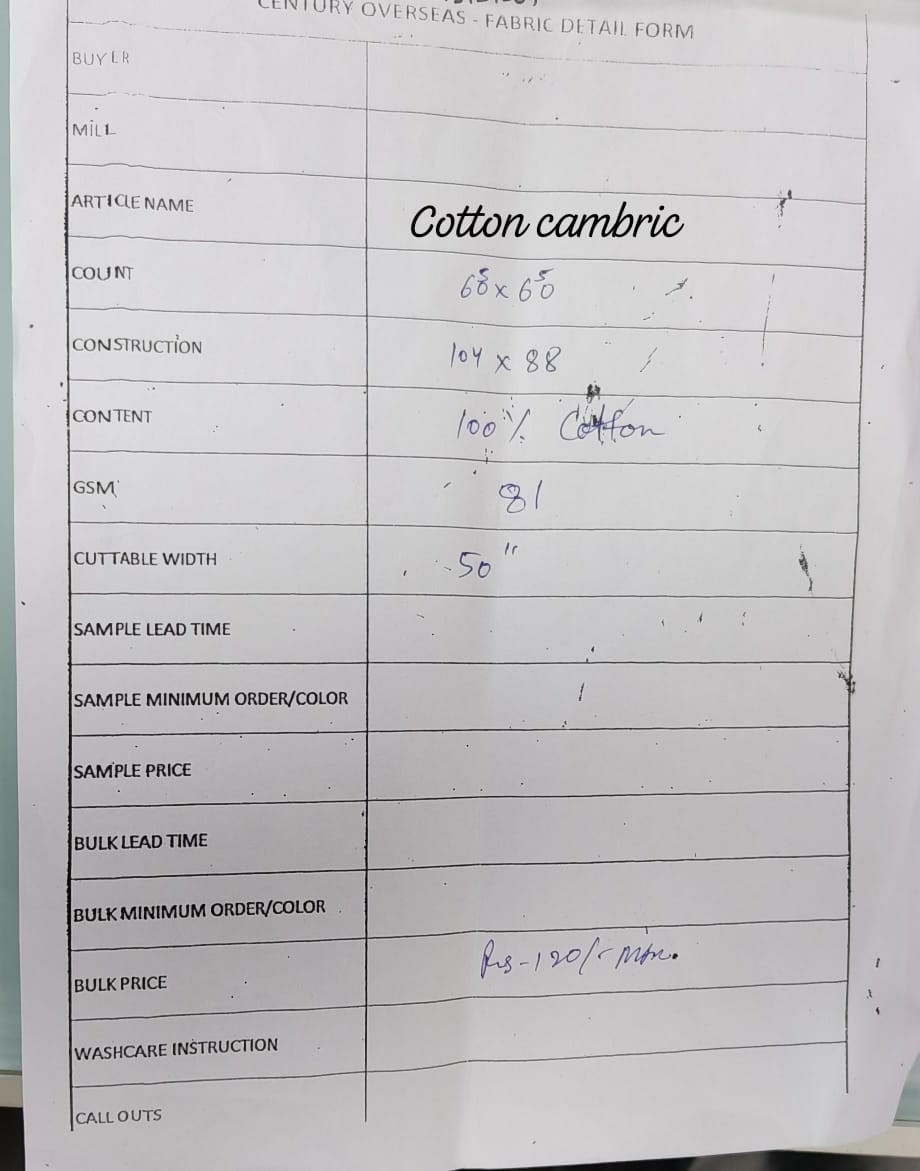 CENTURY OVERSEAS - FABRIC DETAIL FORM
BUYER
MILL
ARTICLE NAME Cotton cambric
COUNT 60ˢ x 60ˢ
CONSTRUCTION 104 x 88
CONTENT 100% Cotton
GSM 81
CUTTABLE WIDTH 50"
SAMPLE LEAD TIME
SAMPLE MINIMUM ORDER/COLOR
SAMPLE PRICE
BULK LEAD TIME
BULK MINIMUM ORDER/COLOR
BULK PRICE Rs-120/-
WASHCARE INSTRUCTION
CALL OUTS